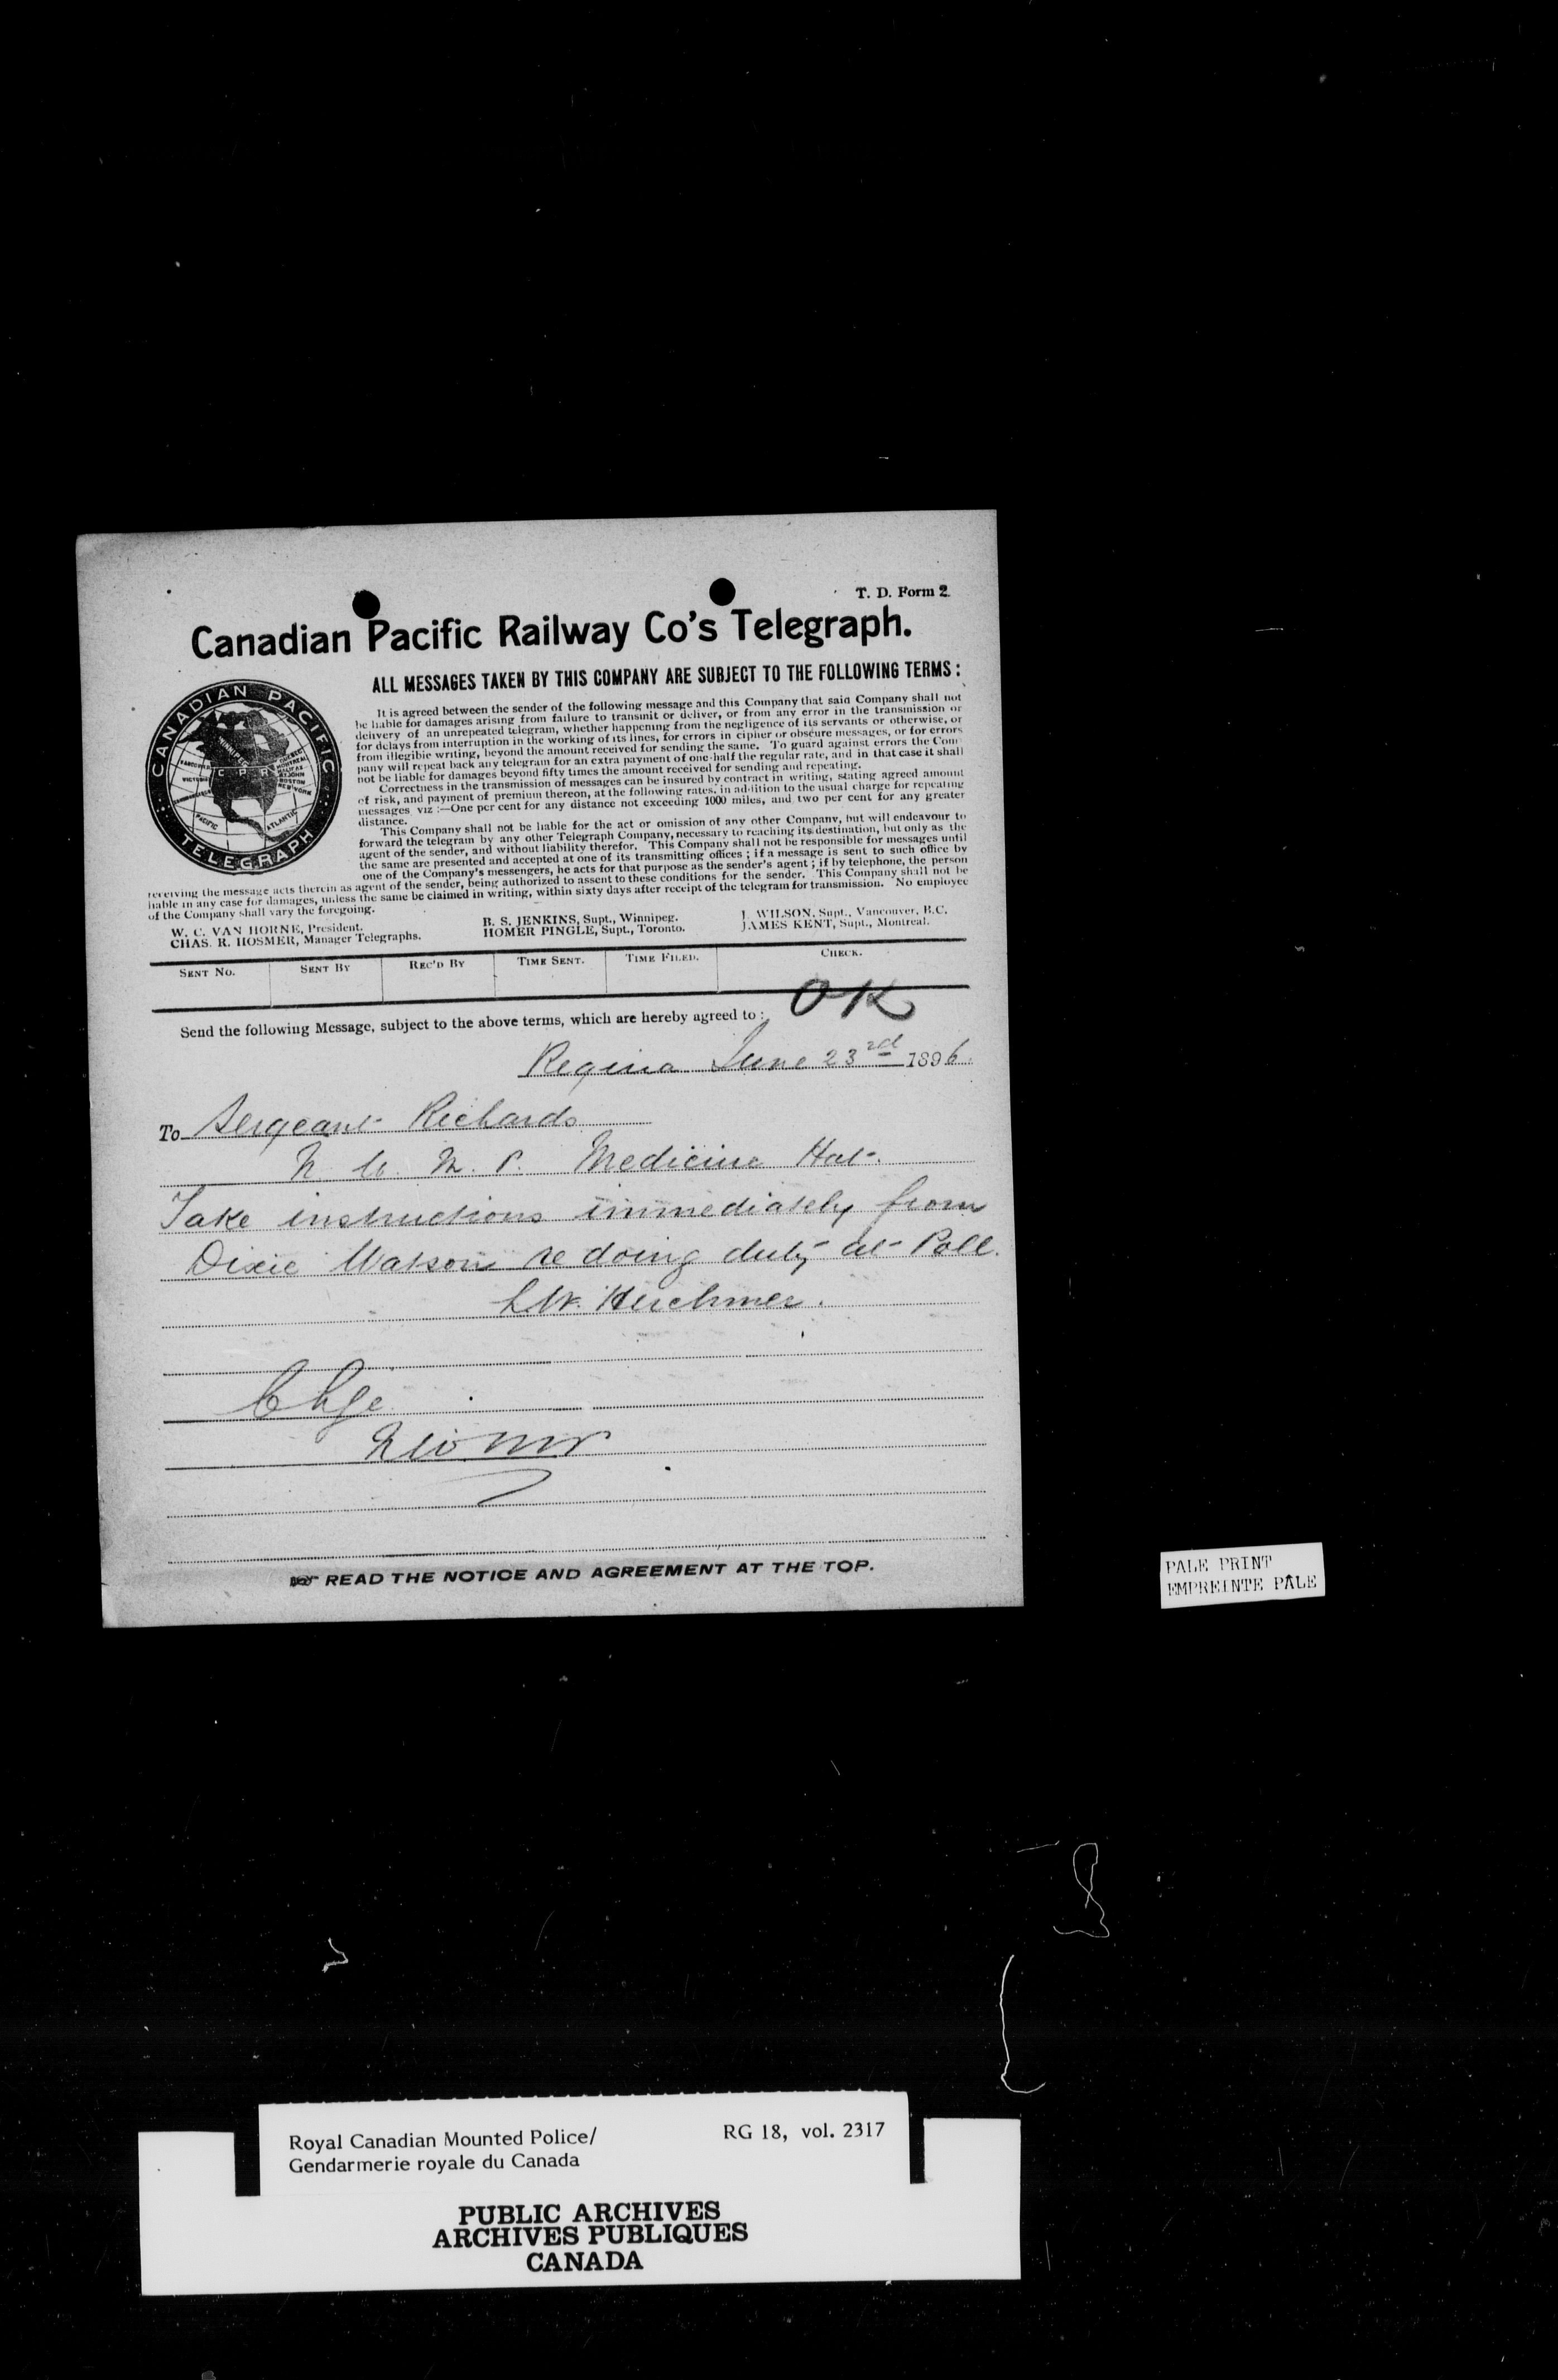 T. D. Form 2.
Canadian Pacific Railway Co's Telegraph.
ALL MESSAGES TAKEN BY THIS COMPANY ARE SUBJECT TO THE FOLLOWING TERMS :
CANADIAN PACIFIC
TELEGRAPH
C P R
WINNIPEG
VANCOUVER
VICTORIA
QUEBEC
MONTREAL
HALIFAX
ST JOHN
BOSTON
NEW YORK
PACIFIC
ATLANTIC
It is agreed between the sender of the following message and this Company that said Company shall not
be liable for damages arising from failure to transmit or deliver, or from any error in the transmission or
delivery of an unrepeated telegram, whether happening from the negligence of its servants or otherwise, or
for delays from interruption in the working of its lines, for errors in cipher or obscure messages, or for errors
from illegible writing, beyond the amount received for sending the same. To guard against errors the Com
pany will repeat back any telegram for an extra payment of one-half the regular rate, and in that case it shall
not be liable for damages beyond fifty times the amount received for sending and repeating.
Correctness in the transmission of messages can be insured by contract in writing, stating agreed amount
of risk, and payment of premium thereon, at the following rates, in addition to the usual charge for repeating
messages viz :—One per cent for any distance not exceeding 1000 miles, and two per cent for any greater
distance.
This Company shall not be liable for the act or omission of any other Company, but will endeavour to
forward the telegram by any other Telegraph Company, necessary to reaching its destination, but only as the
agent of the sender, and without liability therefor. This Company shall not be responsible for messages until
the same are presented and accepted at one of its transmitting offices ; if a message is sent to such office by
one of the Company's messengers, he acts for that purpose as the sender's agent ; if by telephone, the person
receiving the message acts therein as agent of the sender, being authorized to assent to these conditions for the sender. This Company shall not be
liable in any case for damages, unless the same be claimed in writing, within sixty days after receipt of the telegram for transmission. No employee
of the Company shall vary the foregoing.
W. C. VAN HORNE, President. B. S. JENKINS, Supt., Winnipeg. J. WILSON, Supt., Vancouver, B.C.
CHAS. R. HOSMER, Manager Telegraphs. HOMER PINGLE, Supt., Toronto. JAMES KENT, Supt., Montreal.
SENT NO. SENT BY REC'D BY TIME SENT. TIME FILED. CHECK.
OK
Send the following Message, subject to the above terms, which are hereby agreed to :
Regina June 23rd 1896.
To Sergeant Richards
N. W. M. P. Medicine Hat.
Take instructions immediately from
Dixie Watson re doing duty at Poll.
L.W. Herchmer.
Chge
NWMP
READ THE NOTICE AND AGREEMENT AT THE TOP.
PALE PRINT
EMPREINTE PÂLE
Royal Canadian Mounted Police/ RG 18, vol. 2317
Gendarmerie royale du Canada
PUBLIC ARCHIVES
ARCHIVES PUBLIQUES
CANADA